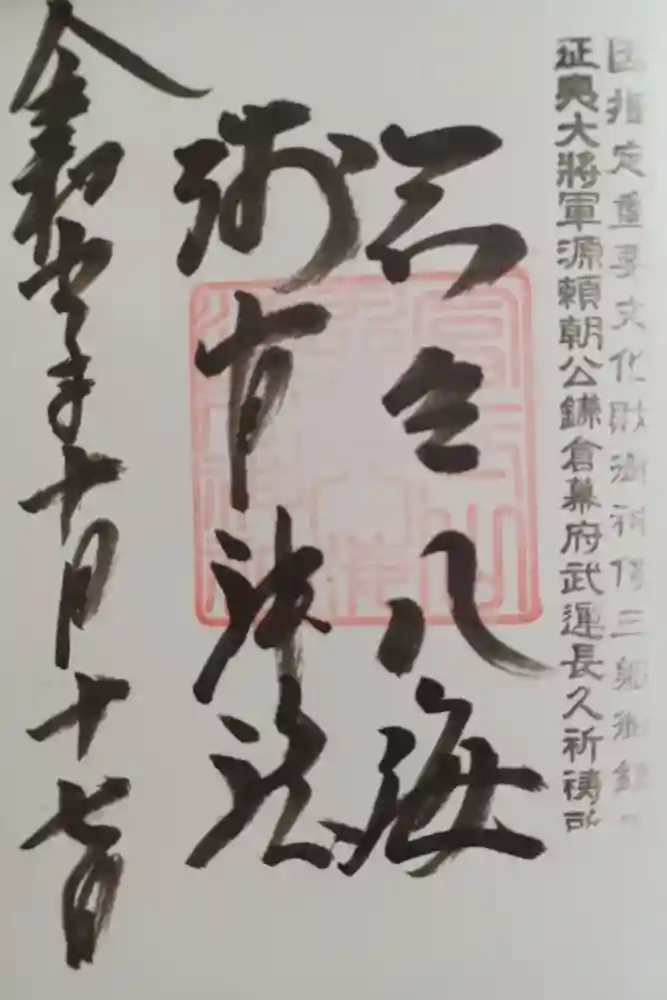 国指定重要文化財御神体三躯御鎮
征夷大將軍源頼朝公鎌倉幕府武運長久祈祷所
冨士八海
浅間神社
令和元年十月十七日